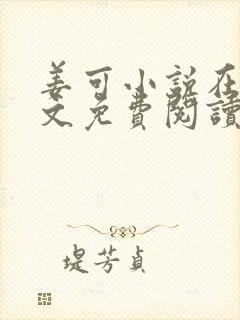 姜可小说在
文免費閱讀
堤芳貞